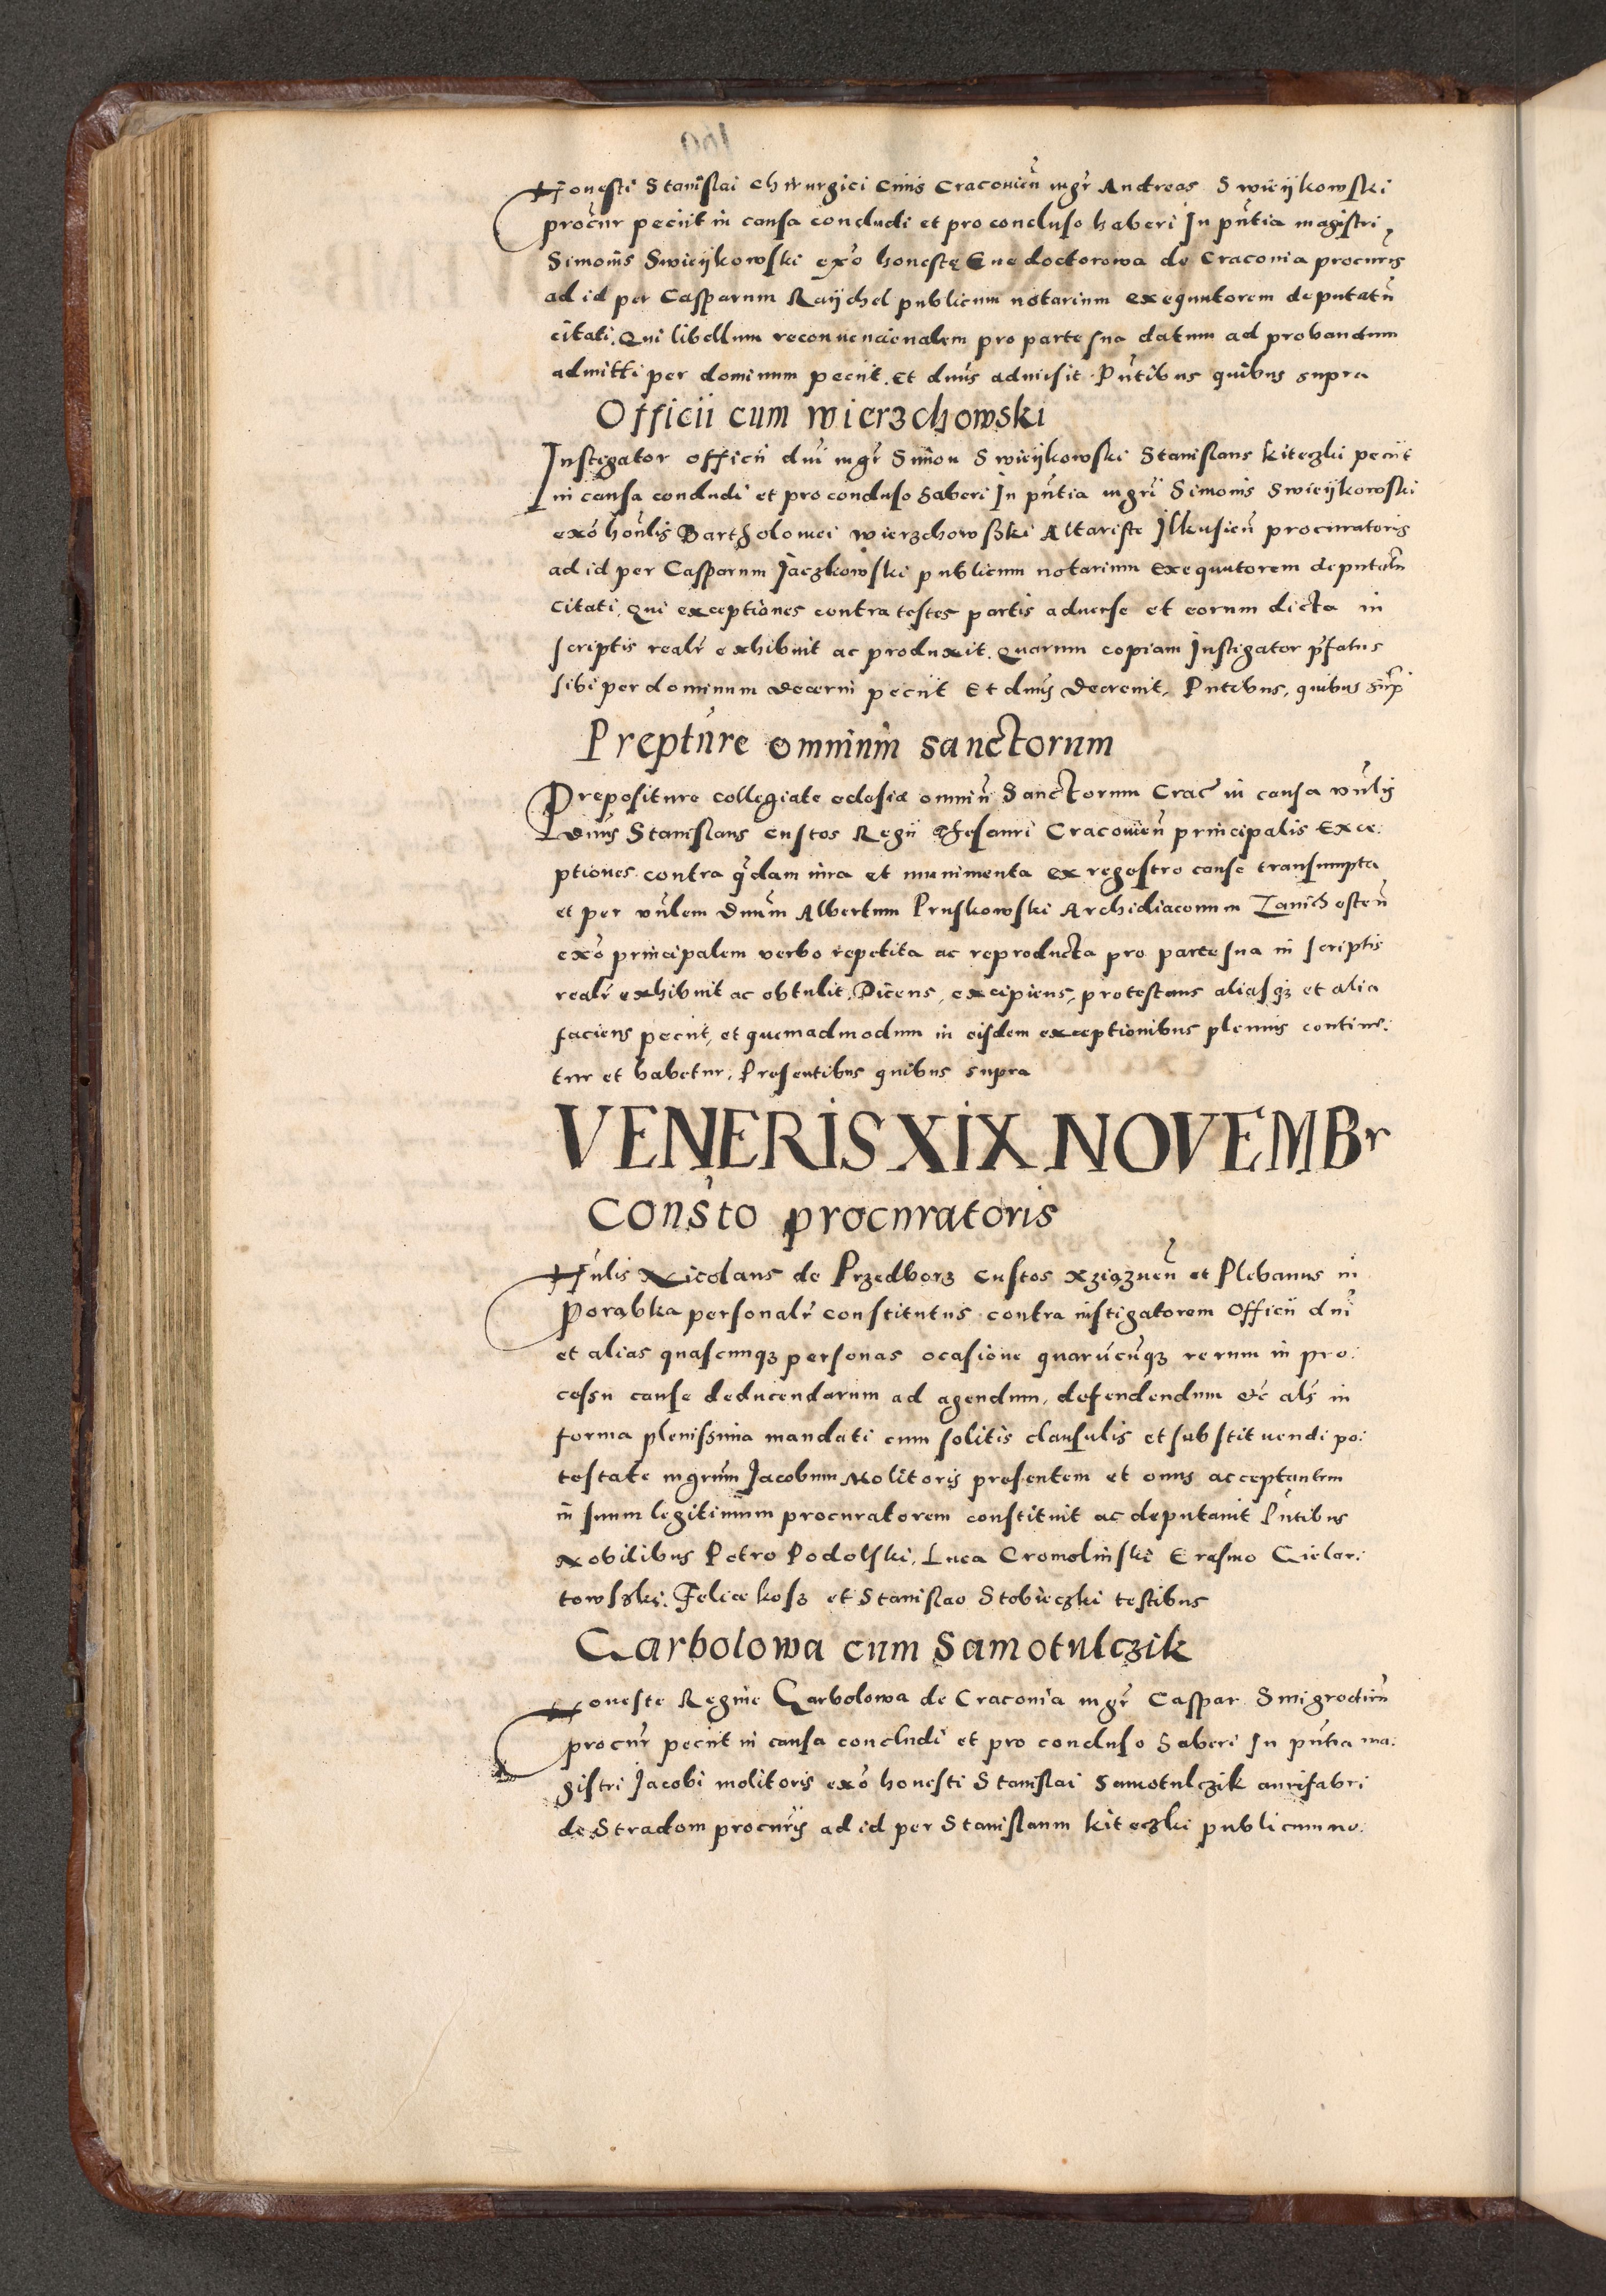 Honesti Stanislai chirurgici ciuis Cracouień mgr̃ Andreas Swieijkowski
procur̃ peciit in causa concludi et pro concluso haberi In pn̄tia magistri
Simonis Swieijkowski ex̃o honestę Eue doctorowa de Cracouia procuris
ad id per Casparum Raijchel publicum notarium exequutorem deputatū
citati. Qui libellum reconuencionalem pro parte sua datum ad probandum
admitti per dominum peciit. Et dn̄us admisit. Pn̄tibus quibus supra
Officii cum wierzchowski
Instigator officii dn̄i mgr̃ Simon Swieijkowski Stanislaus kiteczki peciit
in causa concludi et pro concluso haberi In pn̄tia mgr̃i Simonis Swieijkowski
ex̃o hon̄lis Bartholomei wierzchowski Altariste Ilkusień procuratoris
ad id per Casparum Jaczkowski publicum notarium exequutorem deputatū
citati. Qui exceptiones contra testes partis aduerse et eorum dicta in
scriptis realr̃ exhibuit ac produxit. Quarum copiam Instigator p̄fatus
sibi per dominum decerni peciit Et dn̄us decreuit. Pn̄tibus, quibus sup̄
Preptūre omnium sanctorum
Prepositure collegiate eclesiæ omniū Sanctorum Crac̄ in causa vn̄lis
dn̄us Stanislaus custos Regii thesauri Cracouień principalis Exce:
ptiones contra q̃dam iura et munimenta ex regestro cause transumpta
et per vn̄lem dn̄um Albertum Pruskowski Archidiaconum Zanichosteń
ex̃o principalem verbo repetita ac reproducta pro parte sua in scriptis
realr̃ exhibuit ac obtulit. Dicens, excipiens, protestans aliasqȝ et alia
faciens peciit, et quemadmodum in eisdem exceptionibus plenius contine:
tur et habetur. Presentibus quibus supra
VENERIS XIX NOVEMBr
Consto procuratoris
Hn̄lis Nicolaus de Przedborz custos xziązneń et Plebanus in
Porąbka personalr̃ constitutus contra instigatorem officii dn̄i
et alias quascunqȝ personas ocasione quarūcūqȝ rerum in pro:
cessu cause deducendarum ad agendum, defendendum etc̄ als̃ in
forma plenissima mandati cum solitis clausulis et substituendi po:
testate mgr̃um Jacobum Molitoris presentem et onus acceptantem
in suum legitimum procuratorem constituit ac deputauit Pn̄tibus
Nobilibus Petro Podolski, Luca Cromolinski Erasmo Gielar:
towski, Felice kosz et Stanislao Stobieczki testibus
Garbolowa cum Samotulczik
Honeste Regine Garbolowa de Cracouia mgr̃ Caspar Smigrodień
procur̃ peciit in causa concludi et pro concluso haberi In pn̄tia ma:
gistri Jacobi molitoris ex̃o honesti Stanislai Samotulczik aurifabri
de Stradom procuris ad id per Stanislaum kiteczki publicum no: